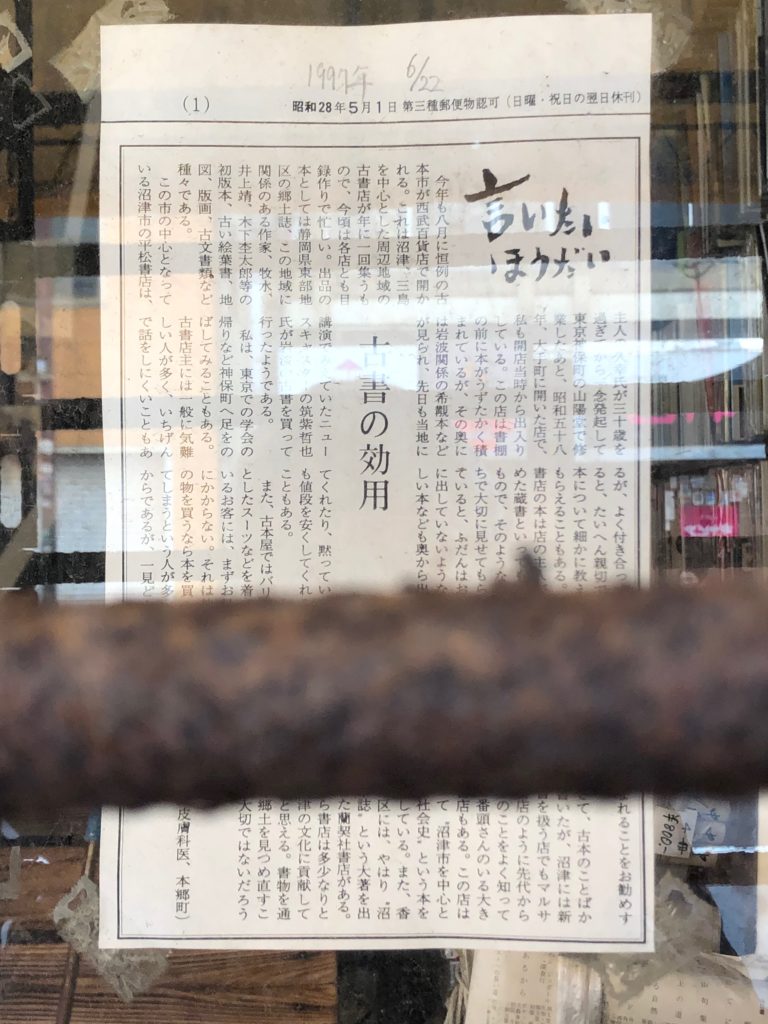 1997年 6/22
(1)
昭和28年5月1日 第三種郵便物認可 (日曜・祝日の翌日休刊)
言いたい
ほうだい
古書の効用
今年も八月に恒例の古
本市が西武百貨店で開か
れる。これは沼津、三島
を中心とした周辺地域の
古書店が年に一回集うも
ので、今頃は各店とも目
録作りで忙しい。出品の
本としては静岡県東部地
区の郷土誌、この地域に
関係のある作家、牧水、
井上靖、木下杢太郎等の
初版本、古い絵葉書、地
図、版画、古文書類など
種々である。
この市の中心となって
いる沼津市の平松書店は、
主人の久幸氏が三十歳を
過ぎてから一念発起して
東京神保町の山陽堂で修
業したあと、昭和五十八
年、大手町に開いた店で、
私も開店当時から出入り
している。この店は書棚
の前に本がうずたかく積
まれているが、その奥に
は岩波関係の希覯本など
が見られ、先日も当地に
講演できていたニュー
スキャスターの筑紫哲也
氏が岩波の古書を買って
行ったようである。
私は、東京での学会の
帰りなど神保町へ足をの
ばしてみることもある。
古書店主には一般に気難
しい人が多く、いちげん
で話をしにくいこともあ
るが、よく付き合っ
ると、たいへん親切で
本について細かに教え
もらえることもある。
書店の本は店の主人
めた蔵書といっ
もので、そのような
ちで大切に見せてもら
ていると、ふだんはお
に出していないような
しい本なども奥から出
てくれたり、黙ってい
も値段を安くしてくれ
こともある。
また、古本屋ではバリ
としたスーツなどを着
いるお客には、まずお
にかからない。それは
の物を買うなら本を買
てしまうという人が多
からであるが、一見ど
れることをお勧めす
て、古本のことばか
いたが、沼津には新
を扱う店でもマルサ
店のように先代から
のことをよく知って
番頭さんのいる大き
店もある。この店は
て〝沼津市を中心と
社会史〟という本を
している。また、香
区には、やはり〝沼
誌〟という大著を出
た蘭契社書店がある。
ら書店は多少なりと
津の文化に貢献して
と思える。書物を通
郷土を見つめ直すこ
大切ではないだろう
皮膚科医、本郷町)